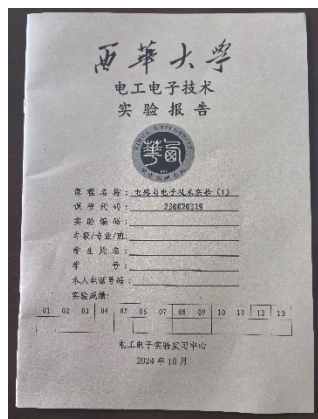 西华大学
电工电子技术
实验报告
XIHUA UNIVERSITY
课程名称：电路与电子技术实验（1）
课学代码：230820319
实验编号：
年级/专业/班：
学生姓名：
学号：
本人电话号码：
实验成绩：
01 02 03 04 05 06 07 08 09 10 11 12 13
电工电子实验实习中心
2024年10月